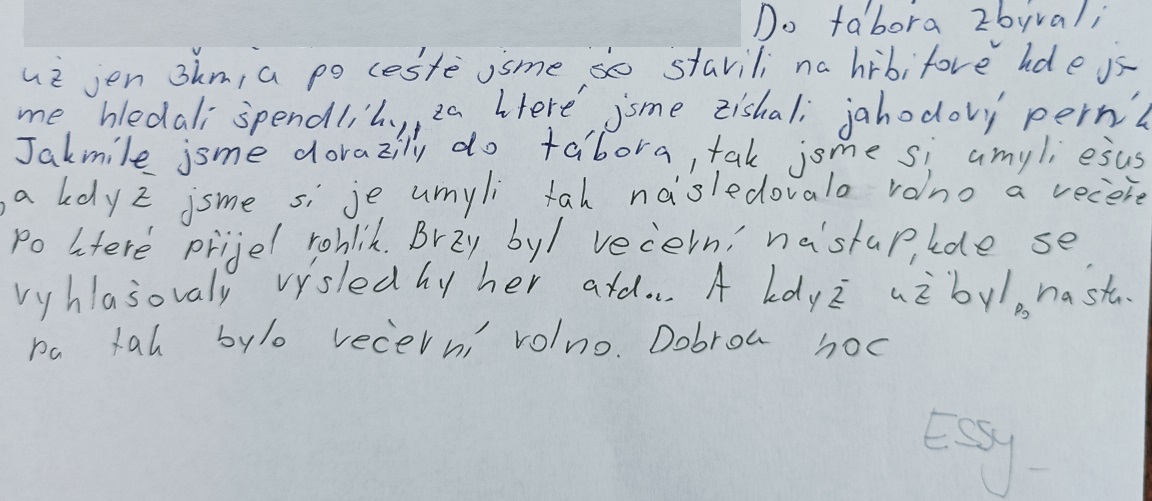 Do tábora zbývali
už jen 3km, a po cestě jsme se stavili na hřbitově kde js-
me hledali špendlíky, za které jsme získali jahodový perník
Jakmile jsme dorazily do tábora, tak jsme si umyli ešus
, a když jsme si je umyli tak následovalo volno a večeře
Po které přijel rohlík. Brzy byl večerní nástup, kde se
vyhlašovaly výsledky her atd... A když už byl po nástu-
pa tak bylo večerní volno. Dobrou noc
Essy